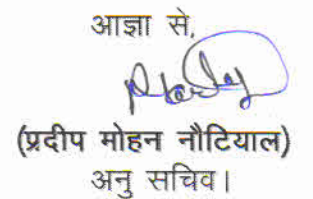 आज्ञा से,
(प्रदीप मोहन नौटियाल)
अनु सचिव।